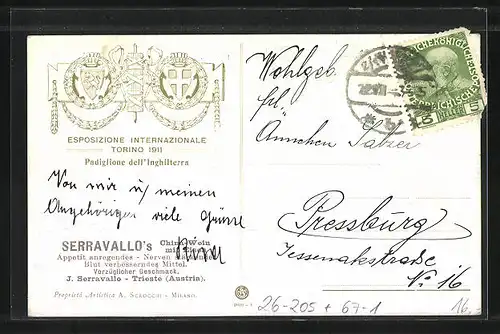 ESPOSIZIONE INTERNAZIONALE
TORINO 1911
Padiglione dell'Inghilterra
Von mir u/ meinen
Angehörigen viele Grüsse
SERRAVALLO's China-Wein
mit Eisen
Appetit anregendes - Nerven
Blut verbesserndes Mittel.
Vorzüglicher Geschmack.
J. Serravallo - Trieste (Austria).
Proprietà Artistica A. Scrocchi - Milano.
Wohlgeb.
Frl.
Ännchen Salzer
Pressburg
No 16
5 5
26-205 + 67-1
16,